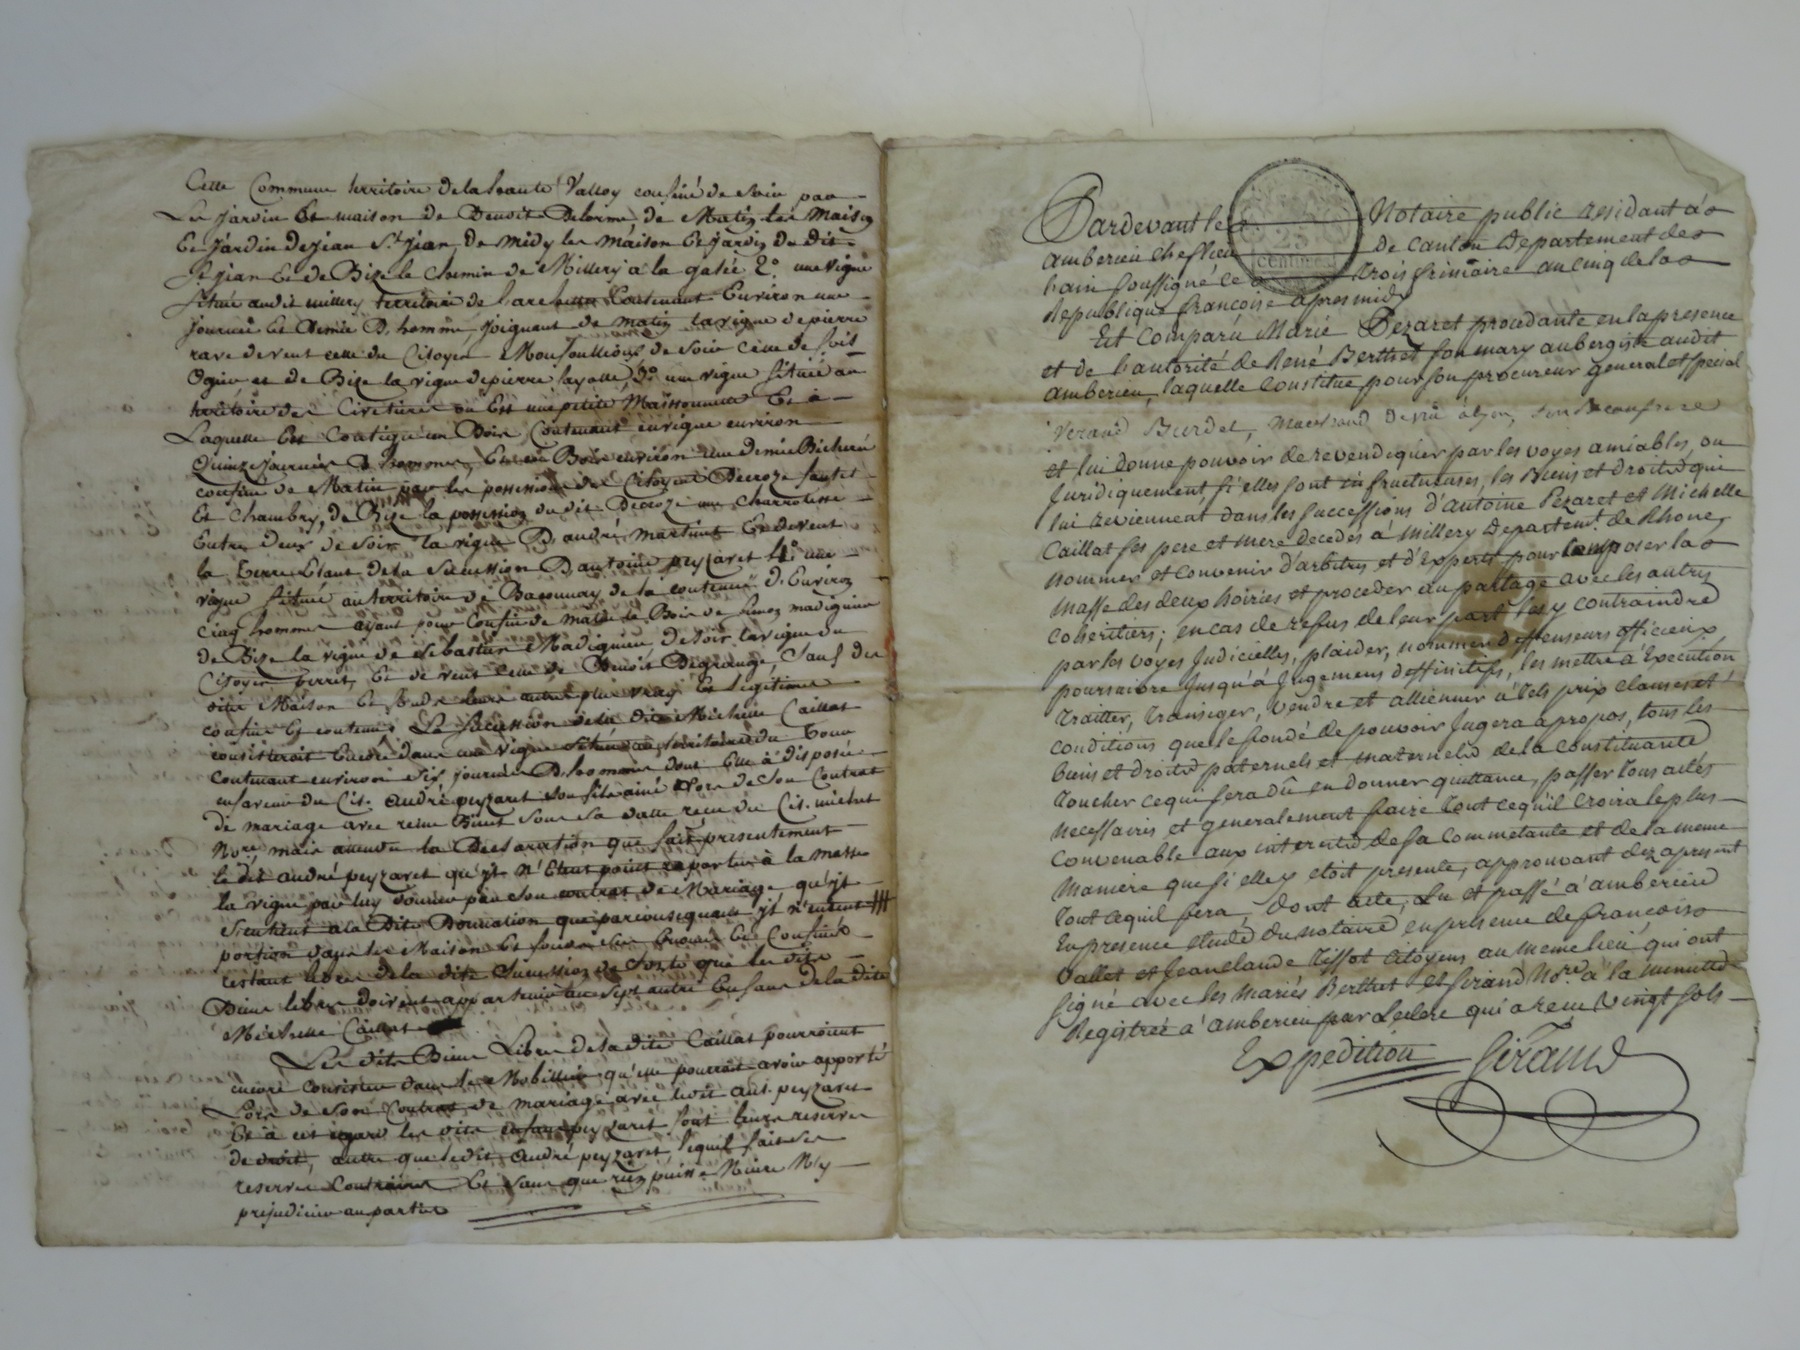 Cette Commune territoire de la haute Valloy confiné de soir par
Les jardin Et maison de Benoit Delorme, de Matin les Maison
Et jardin de jean St. jean, de midy les maison Et jardin du dit
St. jean Et de Bize le chemin de Millery à la galée 2.° une vigne
située audit millery territoire de Contenant Environ une
journée Et Demie D. homme, joignant de matin la vigne de pierre
rave de vent celle du Citoyen de soir celle de
et de Bize la vigne de pierre fayolle, 3.° une vigne située au
territoire des ou Est une petite Maisonnette Et à
Laquelle Est Contigu un Bois Contenant en vigne environ
Quinze journées D. hommes, Et en Bois environ une demie Bicherée
confiné de Matin par les possessions des Citoyens Decroze
Et Chambry, de Bize la possession du dit Decroze une Charrotiere
Entre deux de soir la vigne D. andré martinet Et de vent
la terre Etant de la Sucession D. antoine peyzaret 4.° une
vigne située au territoire de Baconnay de la contenue D. Environ
Cinq hommes ayant pour Confin de matin le Bois de madiguier
de Bize la vigne de sebastien Madiguier, de soir la vigne du
Citoyen perret, Et de vent celle de Benoit Degrange, Sauf des
dites Maison Et fonds leurs autre plus vray Et legitimes
confins Et contenus. La sucession de la dite Michelle Caillat
consisteroit Encore dans une vigne située au territoire du
contenant environ six journées D. hommes dont Elle à disposée
en faveur du Cit. andré peyzaret son fils ainé Lors de son Contrat
de mariage avec reine Binet sous sa datte recu du Cit. michet
Nore. mais attendu la Declaration que fait presentement
le dit andré peyzaret qu'jl N'Etant point à la masse
la vigne par luy donnée par son contrat de Mariage qu'jl
s'entient a la Dite Donnation que par consequent jl n'entent
portion dans les Maison Et fonds Et Confinés
restant libre de la dite Sucession de Sorte que les dits
Biens libres doivent appartenir au sept autre Enfans de la dite
Michelle Caillat
Les dits Biens Libres de la dite Caillat pourroient
encore consister dans le Mobillier qu'elle pourroit avoir apporté
Lors de son contrat de mariage avec le dit ant. peyzaret
Et à cet egard les dits enfans peyzaret font leurs reserves
de droit, autre que ledit andré peyzaret, lequel fait ses
reserves contraires Et sans que rien puisse Nuire Ny
prejudicier au parties
Pardevant le Notaire public residant à
amberieu cheflieu de canton Departement de
lain soussigné le trois frimaire an cinq de la
Republique françoise apres midy
25
centimes
Est Comparu Marie Pezaret procedante en la presence
et de l'autorité de René Berthet son mary aubergiste audit
amberieu, laquelle Constitue pour son procureur general et special
Verand Burdet, Marchand de vin à lyon, son Beaufrere
et lui donne pouvoir de revendiquer par les voyes amiables, ou
Juridiquement si elles sont infructueuses, les Biens et droits qui
lui reviennent dans les successions d'antoine Pezaret et Michelle
Caillat ses pere et mere decedés à Millery Departemt. de Rhone,
nommer et convenir d'arbitres et d'Experts pour composer la
masse des deux hoiries et proceder au partage avec les autres
coheritiers; en cas de refus de leur part les y contraindre
par les voyes Judicielles, plaider, nommer deffenseurs officieux,
poursuivre Jusqu'à Jugemens deffinitifs, les mettre à Execution
traitter, transiger, vendre et alliener à tels prix clauses et
conditions que le fondé de pouvoir Jugera apropos, tous les
biens et droits paternels et maternels de la constituante
toucher ce qui sera dû en donner quittance, passer tous actes
necessaires et generalement faire tout ce qu'il croira le plus
convenable aux interets de sa commetante et de la meme
maniere que si elle y etoit presente, approuvant dez apresent
tout ce qu'il fera, Dont acte, Lu et passé à amberieu
En presence etude du notaire en presence de françois
Vallet et Jeanclaude Tissot citoyens au meme lieu, qui ont
signé avec les mariés Berthet et Girand Nore. à la minutte
Registrée à amberieu par Leclerc qui a recu vingt sols
Expedition Girand